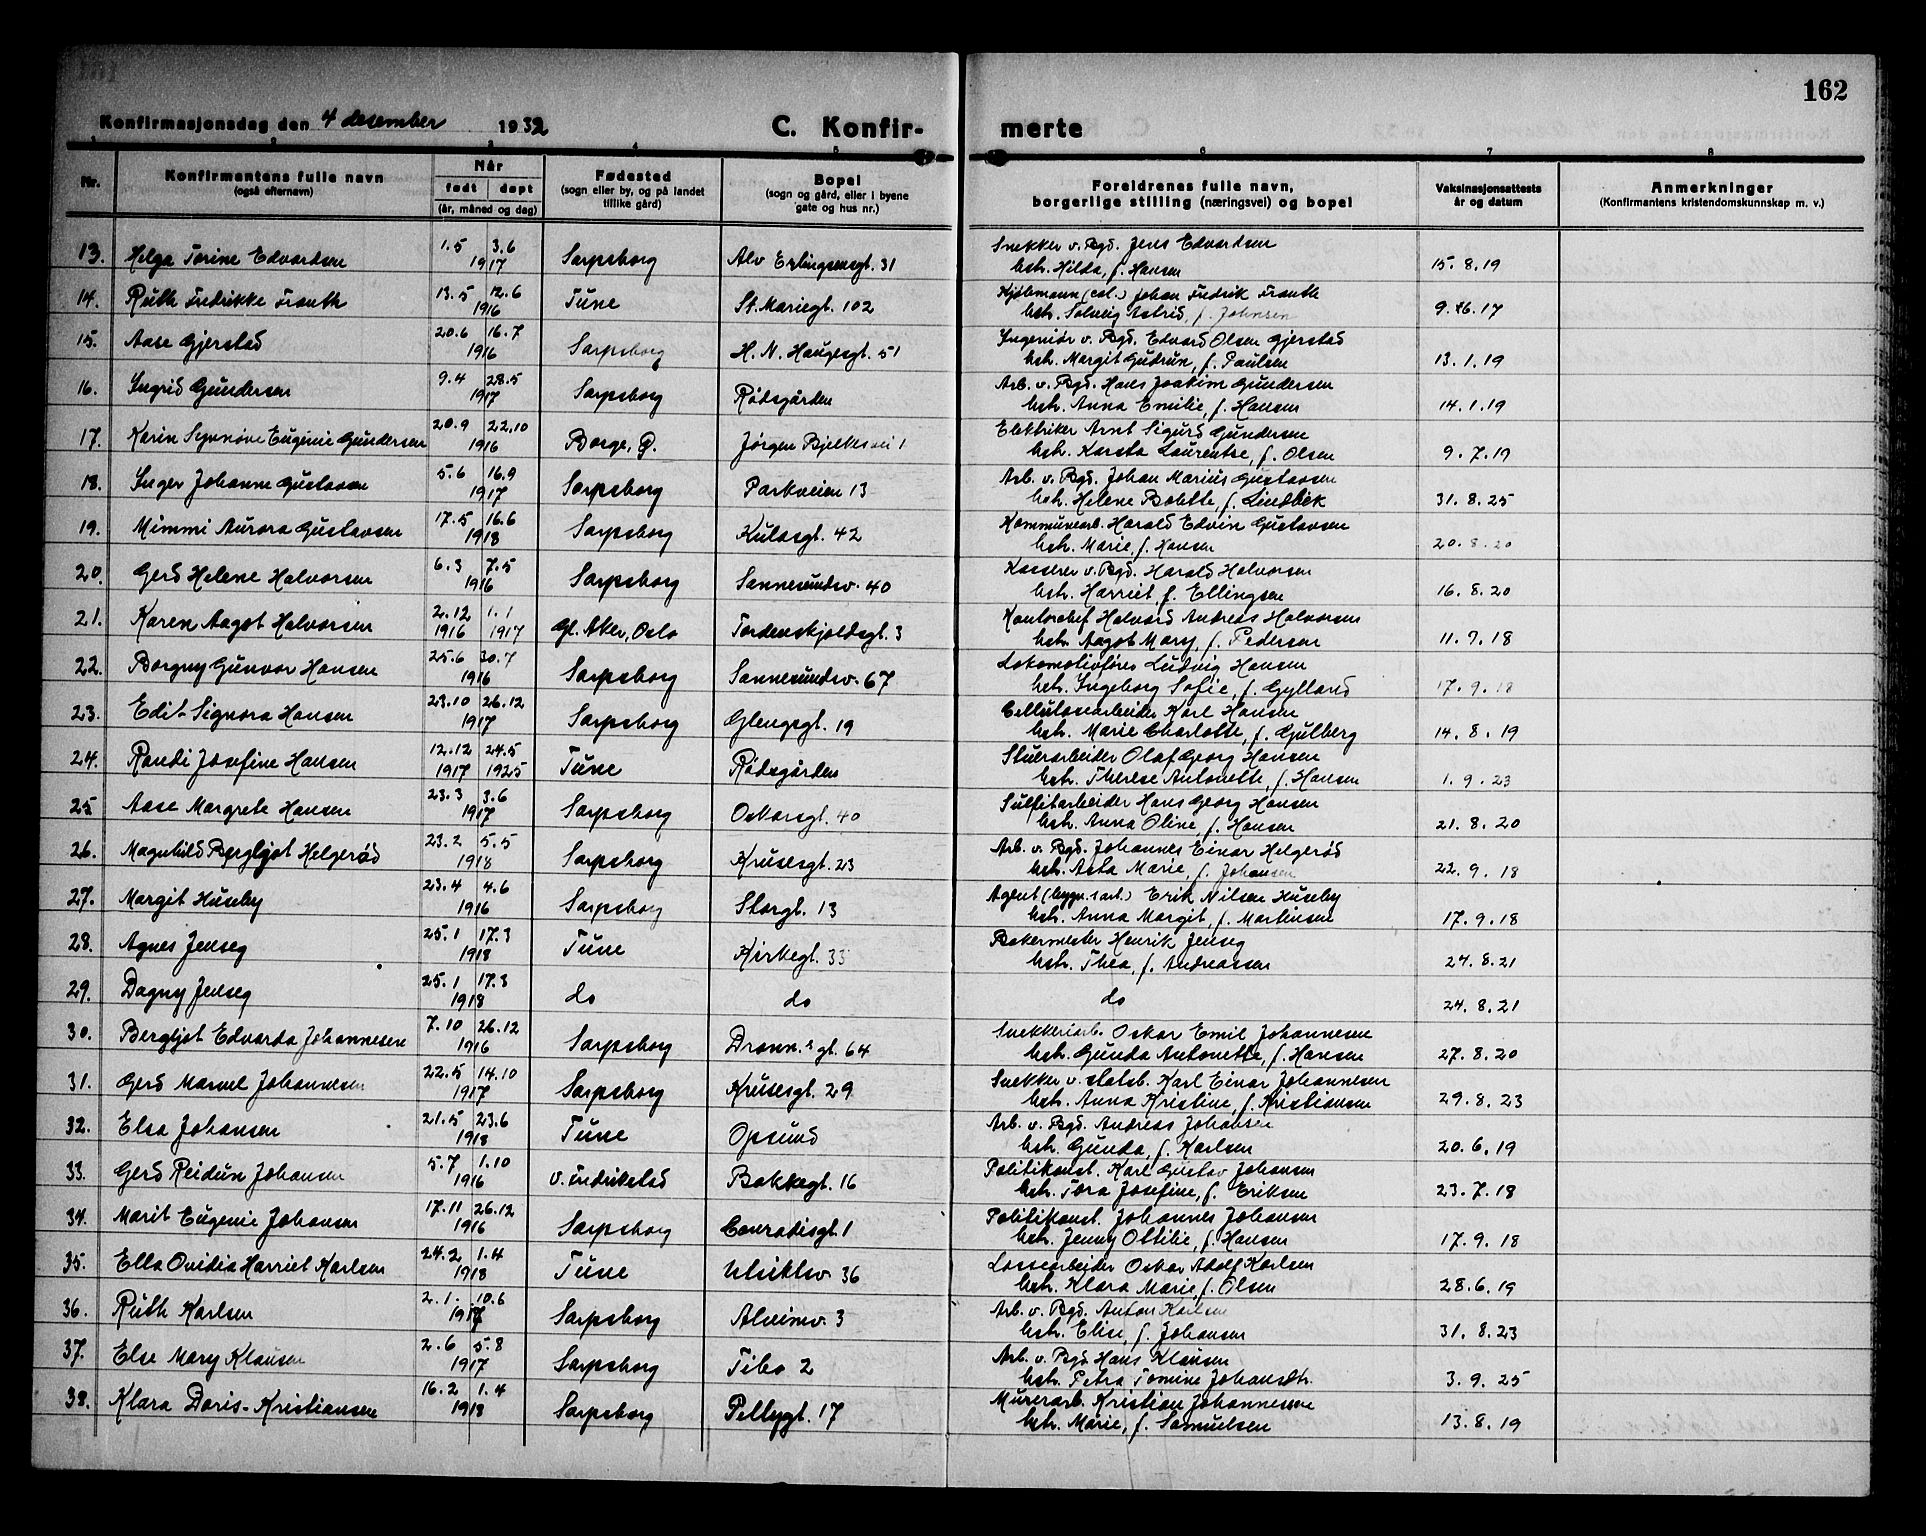 162
Konfirmasjonsdag den 4 desember 1932 C. Konfir- merte
1 2 3 4 5 6 7 8
Nr. Konfirmantens fulle navn (også efternavn) Når født døpt (år, måned og dag) Fødested (sogn eller by, og på landet tillike gård) Bopel (sogn og gård, eller i byene gate og hus nr.) Foreldrenes fulle navn, borgerlige stilling (næringsvei) og bopel Vaksinasjonsattests år og datum Anmerkninger (Konfirmantens kristendomskunnskap m. v.)
13. Helga Torine Edvardsen 1.5 3.6 1917 Sarpsborg Alv Erlingsensgt. 31 Snekker v. Bgd. Jens Edvardsen
hstr. Hilda, f. Hansen 15.8.19
14. Ruth Fredrikke Frauth 13.5 12.6 1916 Tune St. Mariegt. 102 Kjøbmann (col.) Johan Fredrik Frauth
hstr. Solveig Astrid, f. Johnsen 9.6.17
15. Aase Gjerstad 20.6 16.7 1916 Sarpsborg H. N. Haugesgt. 51 Ingeniør v. Bgd. Edvard Olsen Gjerstad
hstr. Margit Gudrun, f. Paulsen 13.1.19
16. Ingrid Gundersen 9.4 28.5 1917 Sarpsborg Rødsgården Arb. v. Bgd. Hans Joakim Gundersen
hstr. Anna Emilie, f. Hansen 14.1.19
17. Karin Synnøve Eugenie Gundersen 20.9 22.10 1916 Borge, Ø. Jørgen Bjelkesvei 1 Elektriker Arnt Sigurd Gundersen
hstr. Karsta Laurentse, f. Olsen 9.7.19
18. Inger Johanne Gustavsen 5.6 16.9 1917 Sarpsborg Parkveien 13 Arb. v. Bgd. Johan Marius Gustavsen
hstr. Helene Bolette, f. Lindbek 31.8.25
19. Mimmi Aurora Gustavsen 17.5 16.6 1918 Sarpsborg Kulåsgt. 42 Kommunearb. Harald Edvin Gustavsen
hstr. Marie, f. Hansen 20.8.20
20. Gerd Helene Halvorsen 6.3 7.5 1916 Sarpsborg Sannesundsv. 40 Kasserer v. Bgd. Harald Halvorsen
hstr. Harriet f. Ellingsen 16.8.20
21. Karen Aagot Halvorsen 2.12 1916 1.1 1917 Gl. Aker, Oslo Tordenskjoldsgt. 3 Kontorchef Halvard Andreas Halvorsen
hstr. Aagot Mary, f. Pedersen 11.7.18
22. Borgny Gunvor Hansen 25.6 30.7 1916 Sarpsborg Sannesundsv. 67 Lokomotivfører Ludvig Hansen
hstr. Ingeborg Sofie, f. Gylland 17.9.18
23. Edit Signora Hansen 23.10 26.12 1917 Sarpsborg Glengsgt. 19 Cellulosearbeider Karl Hansen
hstr. Marie Charlotte, f. Gulberg 14.8.19
24. Randi Josefine Hansen 12.12 1917 24.5 1925 Tune Rødsgården Stuerarbeider Olaf Georg Hansen
hstr. Therese Antonette, f. Hansen 1.9.23
25 Aase Margrete Hansen 23.3 3.6 1917 Sarpsborg Oskarsgt. 40 Sulfitarbeider Hans Georg Hansen
hstr. Anna Oline, f. Hansen 21.8.20
26. Magnhild Bergljot Helgerød 23.2 5.5 1918 Sarpsborg Krusesgt. 23 Arb. v. Bgd. Johannes Einar Helgerød
hstr. Asta Marie, f. Johansen 22.9.18
27. Margit Huseby 23.4 4.6 1916 Sarpsborg Storgt. 13 Agent (bygn. s art.) Erik Nilsen Huseby
hstr. Anna Margit, f. Martinsen 17.9.18
28. Agnes Jenseg 25.1 17.3 1918 Tune Kirkegt. 33 Bakermester Henrik Jenseg
hstr. Thea, f. Andreassen 24.8.21
29. Dagny Jenseg 25.1 17.3 1918 do do do 24.8.21
30. Bergljot Edvarda Johannesen 7.10 26.12 1916 Sarpsborg Dronn.s gt. 64 Snekkeriarb. Oskar Emil Johannesen
hstr. Gunda Antonette, f. Hansen 27.8.20
31. Gerd Maruel Johannesen 22.5 14.10 1917 Sarpsborg Krusesgt. 29 Snekker v. statsb. Karl Einar Johannesen
hstr. Anna Kristine, f. Kristiansen 29.8.23
32. Elsa Johansen 21.5 23.6 1918 Tune Opsund Arb. v. Bgd. Andreas Johansen
hstr. Gunda, f. Karlsen 20.6.19
33. Gerd Reidun Johansen 5.7 1.10 1916 V. Fredrikstad Bakkegt. 16 Politikonst. Karl Gustav Johansen
hstr. Tora Josefine, f. Eriksen 23.7.18
34. Marit Eugenie Johansen 17.11 26.12 1916 Sarpsborg Conradisgt. 1 Politikonst. Johannes Johansen
hstr. Jenny Ottilie, f. Hansen 17.9.18
35. Ella Ovidia Harriet Karlsen 24.2 1.4 1918 Tune 36 Lossearbeider Oskar Adolf Karlsen
hstr. Klara Marie, f. Olsen 28.6.19
36. Ruth Karlsen 2.1. 10.6 1917 Sarpsborg Alveimv. 3 Arb. v. Bgd. Anton Karlsen
hstr. Elise, f. Johansen 31.8.23
37. Else Mary Klausen 2.6 5.8 1917 Sarpsborg Tibo 2 Arb. v. Bgd Hans Klausen
hstr. Petra Tomine Johansdtr. 3.9.25
38. Klara Doris-Kristiansen 16.2 1.4 1918 Sarpsborg Pellygt. 17 Murerarb. Kristian Johannesen
hstr. Marie, f. Samuelsen 13.8.19